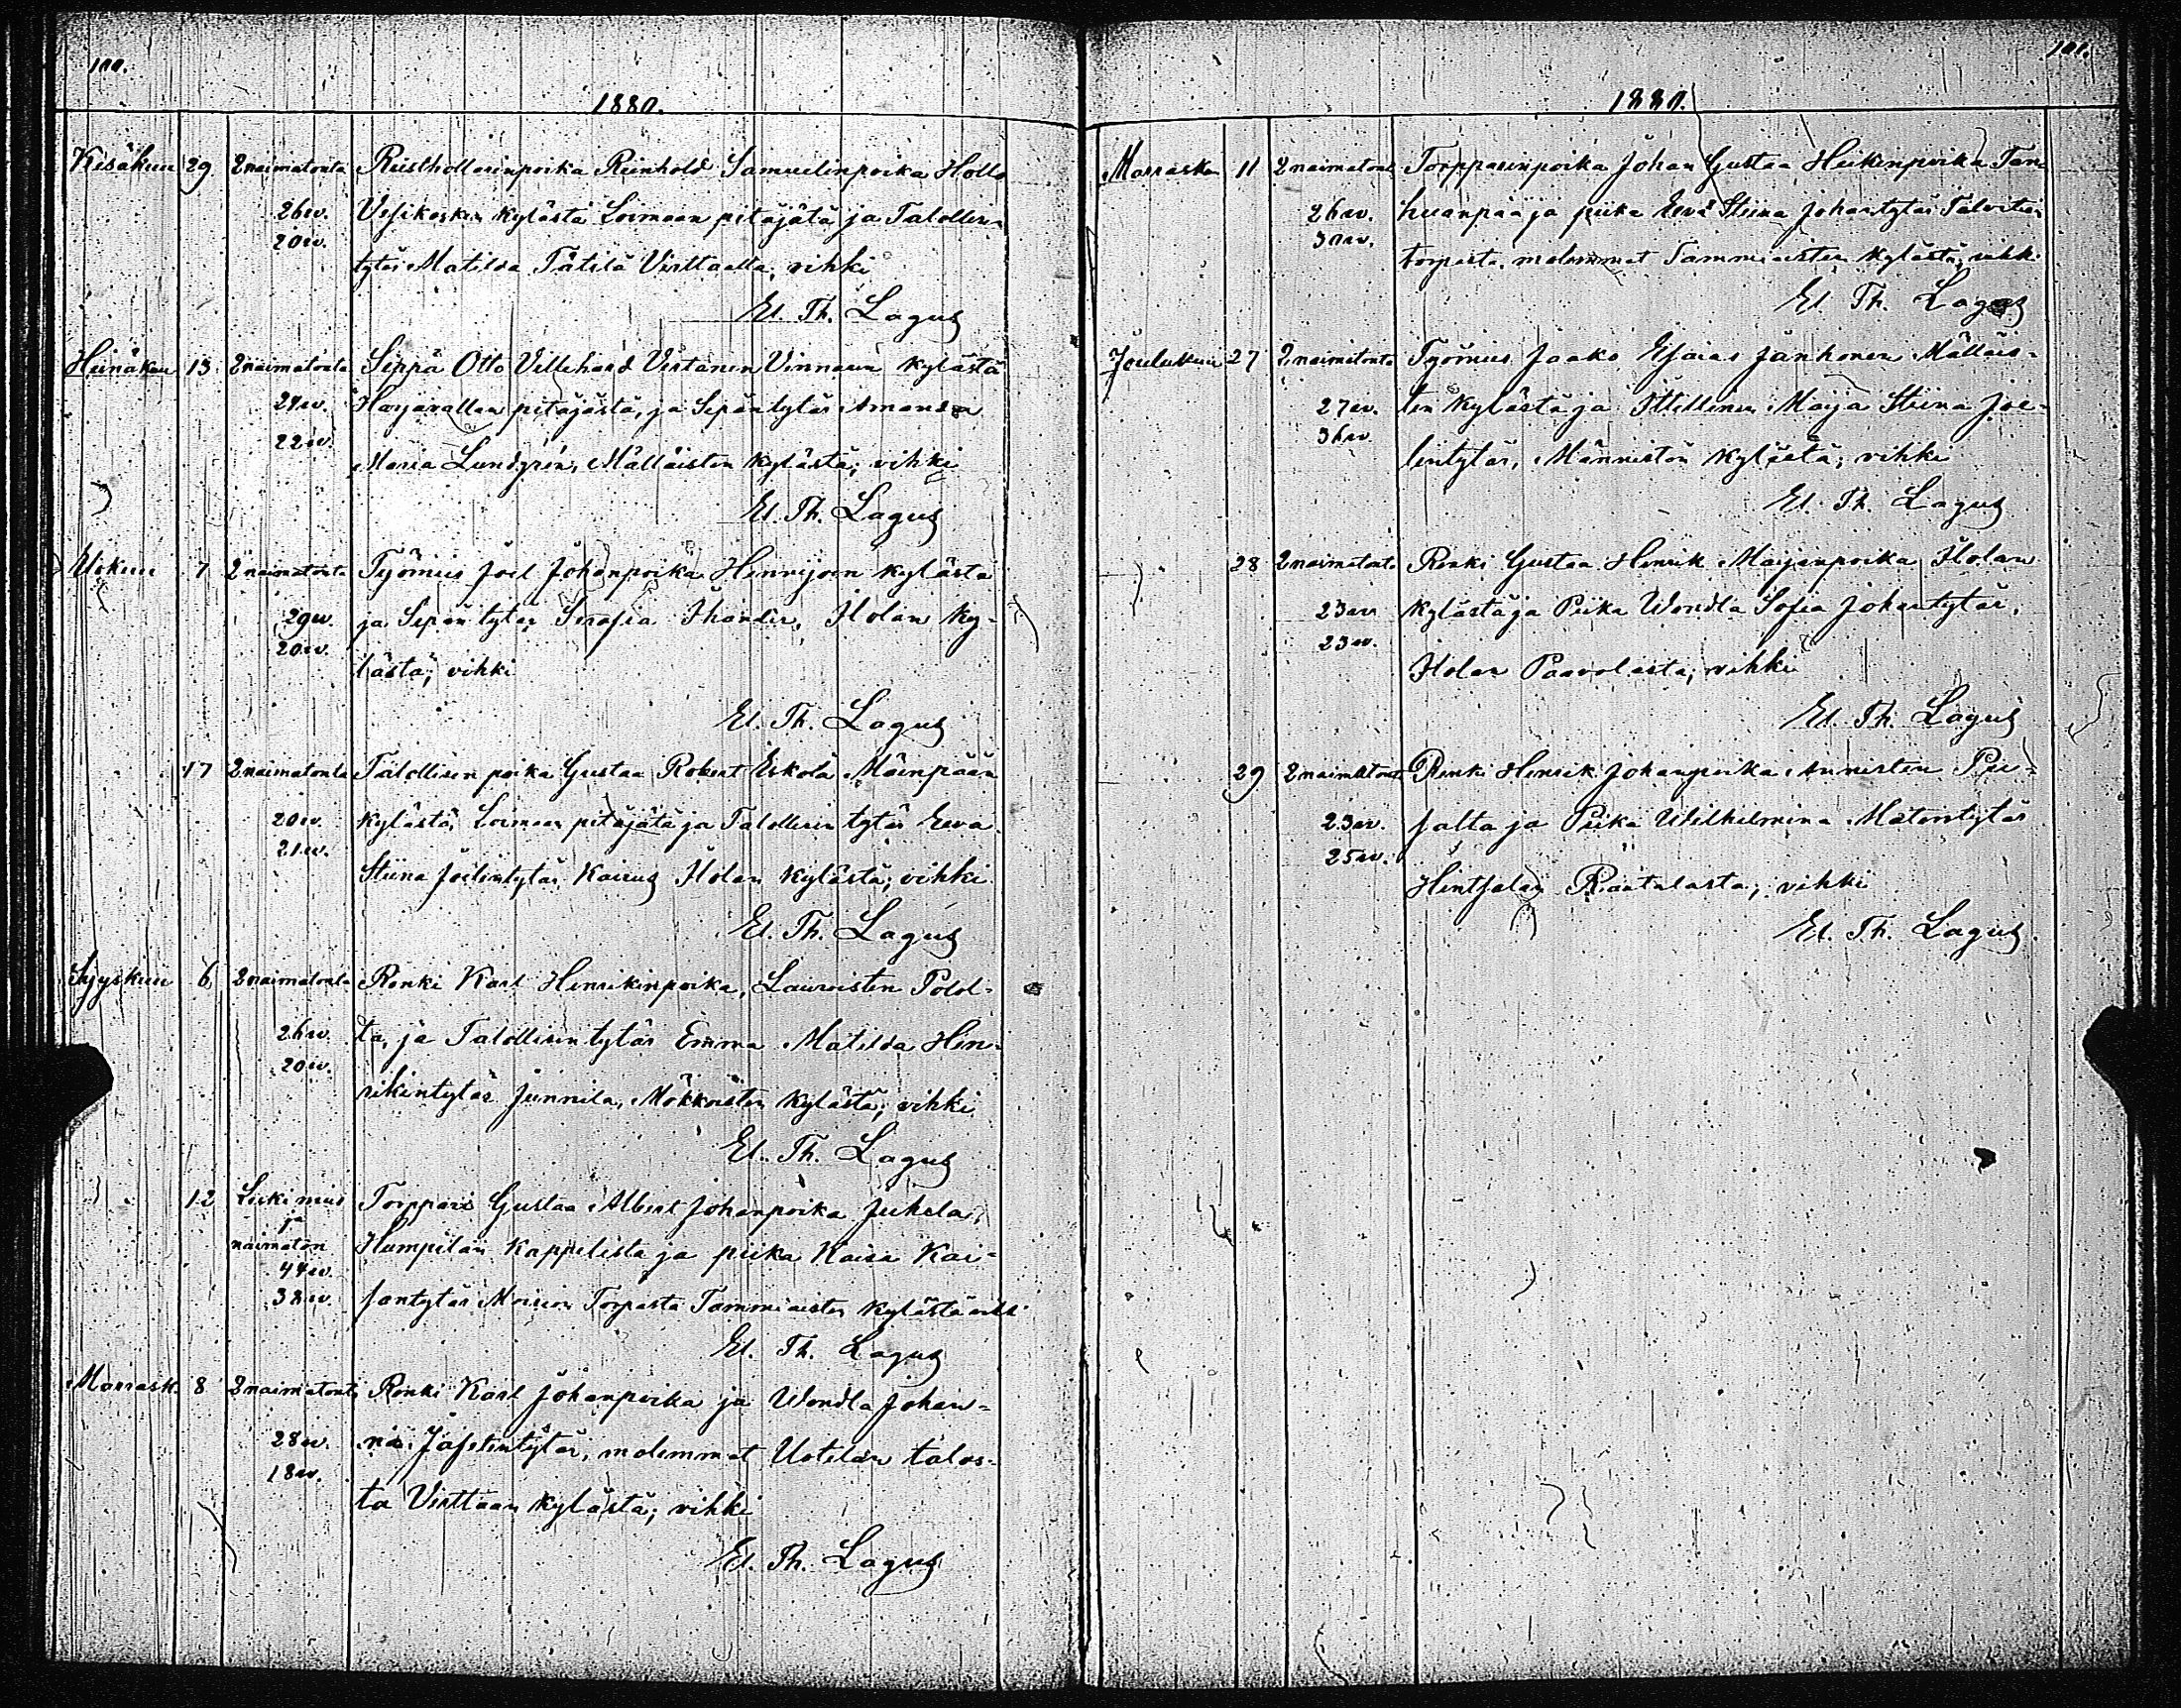 100.
1880.
Kesäkuu 29. 2 naimatonta Rusthollarinpoika Reinhold Samuelinpoika Hollo
26 v. Vesikosken kylästä Loimaan pitäjätä ja Talollisen
20 v. tytär Matilda Tätilä Virttaalta, vihki
El. Th. Lagus
Heinäkuu 13. 2 naimatonta Seppä Otto Villehard Virtanen Vinnarin kylästä
24 v. Harjavallan pitäjästä, ja Sepäntytär Amanda
22 v. Maria Lundgrén, Mälläisten kylästä; vihki
El. Th. Lagus
Elokuu 7 2 naimatonta Työmies Joel Johanpoika Hennijoen kylästä
29 v. ja Sepän tytär Serafia Thander, Ilolan ky-
20 v. lästä; vihki
El. Th. Lagus
17 2 naimatonta Talollisen poika Gustaa Robert Eskola Mäenpään
20 v. kylästä, Loimaan pitäjätä ja Talollisen tytär Eeva
21 v. Stiina Joelintytär Kairus Ilolan kylästä; vihki
El. Th. Lagus
Syyskuu 6 2 naimatonta Renki Karl Henrikinpoika, Lauroisten Polol-
26 v. ta, ja Talollisen tytär Emma Matilda Hen-
20 v. rikintytär Junnila, Mökköisten kylästä; vihki
El. Th. Lagus
12 Leski mies Torppari Gustaa Albert Johanpoika Juhela,
ja
naimaton Humpilan Kappelista ja piika Kaisa Kai-
44 v.
38 v. santytär Moision Torpasta Tammiaisten kylästä vihki
El. Th. Lagus
Marrask. 8 2 naimatonta Renki Karl Johanpoika ja Wendla Johan-
28 v. na Jafetintytär, molemmat Uotilan talos-
18 v. ta Virttaan kylästä; vihki
El. Th. Lagus
101.
1880.
Marraskuu 11 2 naimatont. Torpparinpoika Johan Gustaa Heikinpoika Tan-
26 v. huanpää ja piika Eeva Stiina Johantytär Talvitien
30 v. torpasta, molemmat Tammiaisten kylästä; vihki
El. Th. Lagus
Joulukuu 27 2 naimatonta Työmies Jaako Esaias Janhonen Mälläis-
27 v. ten kylästä ja Ittellinen Maija Stiina Joe-
36 v. lintytär, Männistön kylästä; vihki
El. Th. Lagus
28 2 naimatonta Renki Gustaa Henrik Maijanpoika Ilolan
23 v. kylästä ja Piika Wendla Sofia Johantytär,
23 v. Ilolan Paavolasta; vihki
El. Th. Lagus
29 2 naimatont Renki Henrik Johanpoika Annisten Pii-
23 v. salta ja Piika Wilhelmina Matintytär
25 v. Hintsalan Räätalasta; vihki
El. Th. Lagus